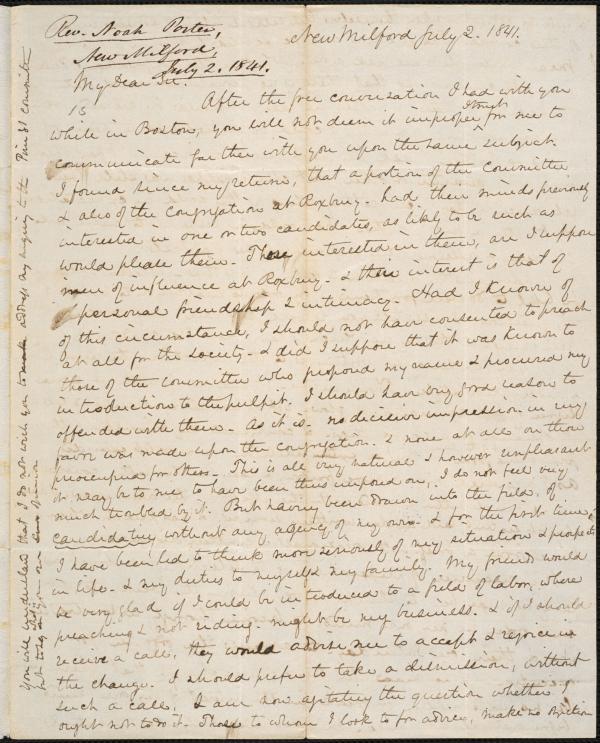 Rev. Noah Porter,
New Milford,
July 2. 1841.
New Milford July 2. 1841.
My Dear Sir.
After the free conversation I had with you
while in Boston, you will not deem it improper for me to
communicate farther with you upon the same subject.
I found since my return, that a portion of the Committee
& also of the Congregation at Roxbury. had their minds previously
interested in one or two candidates, as likely to be such as
would please them. Those interested in them, are I suppose
men of influence at Roxbury. & their interest is that of
personal friendship & intimacy. Had I known of
of this circumstance, I should not have consented to preach
at all for the society. & did I suppose that it was known to
those of the committee who proposed my name & procured my
introduction to the pulpit. I should have very good reason to
offended with them. As it is. no decisive impression in my
favor was made upon the congregation. & none at all on those
preoccupied for others. This is all very natural & however unpleasant
it may be to me to have been thus imposed on, I do not feel very
much troubled by it. But having been drawn into the field, of
candidating without any agency of my own & for the first time,
I have been led to think more seriously of my situation & prospects
in life. & my duties to myself & my family. My friends would
be very glad if I could be introduced to a field of labor, where
preaching & not riding. might be my business. & if I should
receive a call, they would advise me to accept & rejoice in
the change. I should prefer to take a dismission, without
such a call. I am now agitating the question whether I
ought not to do it. Those to whom I look to for advice, make no objection
You will understand that I do not wish you to make address my enquiry to the committee
but to say your own